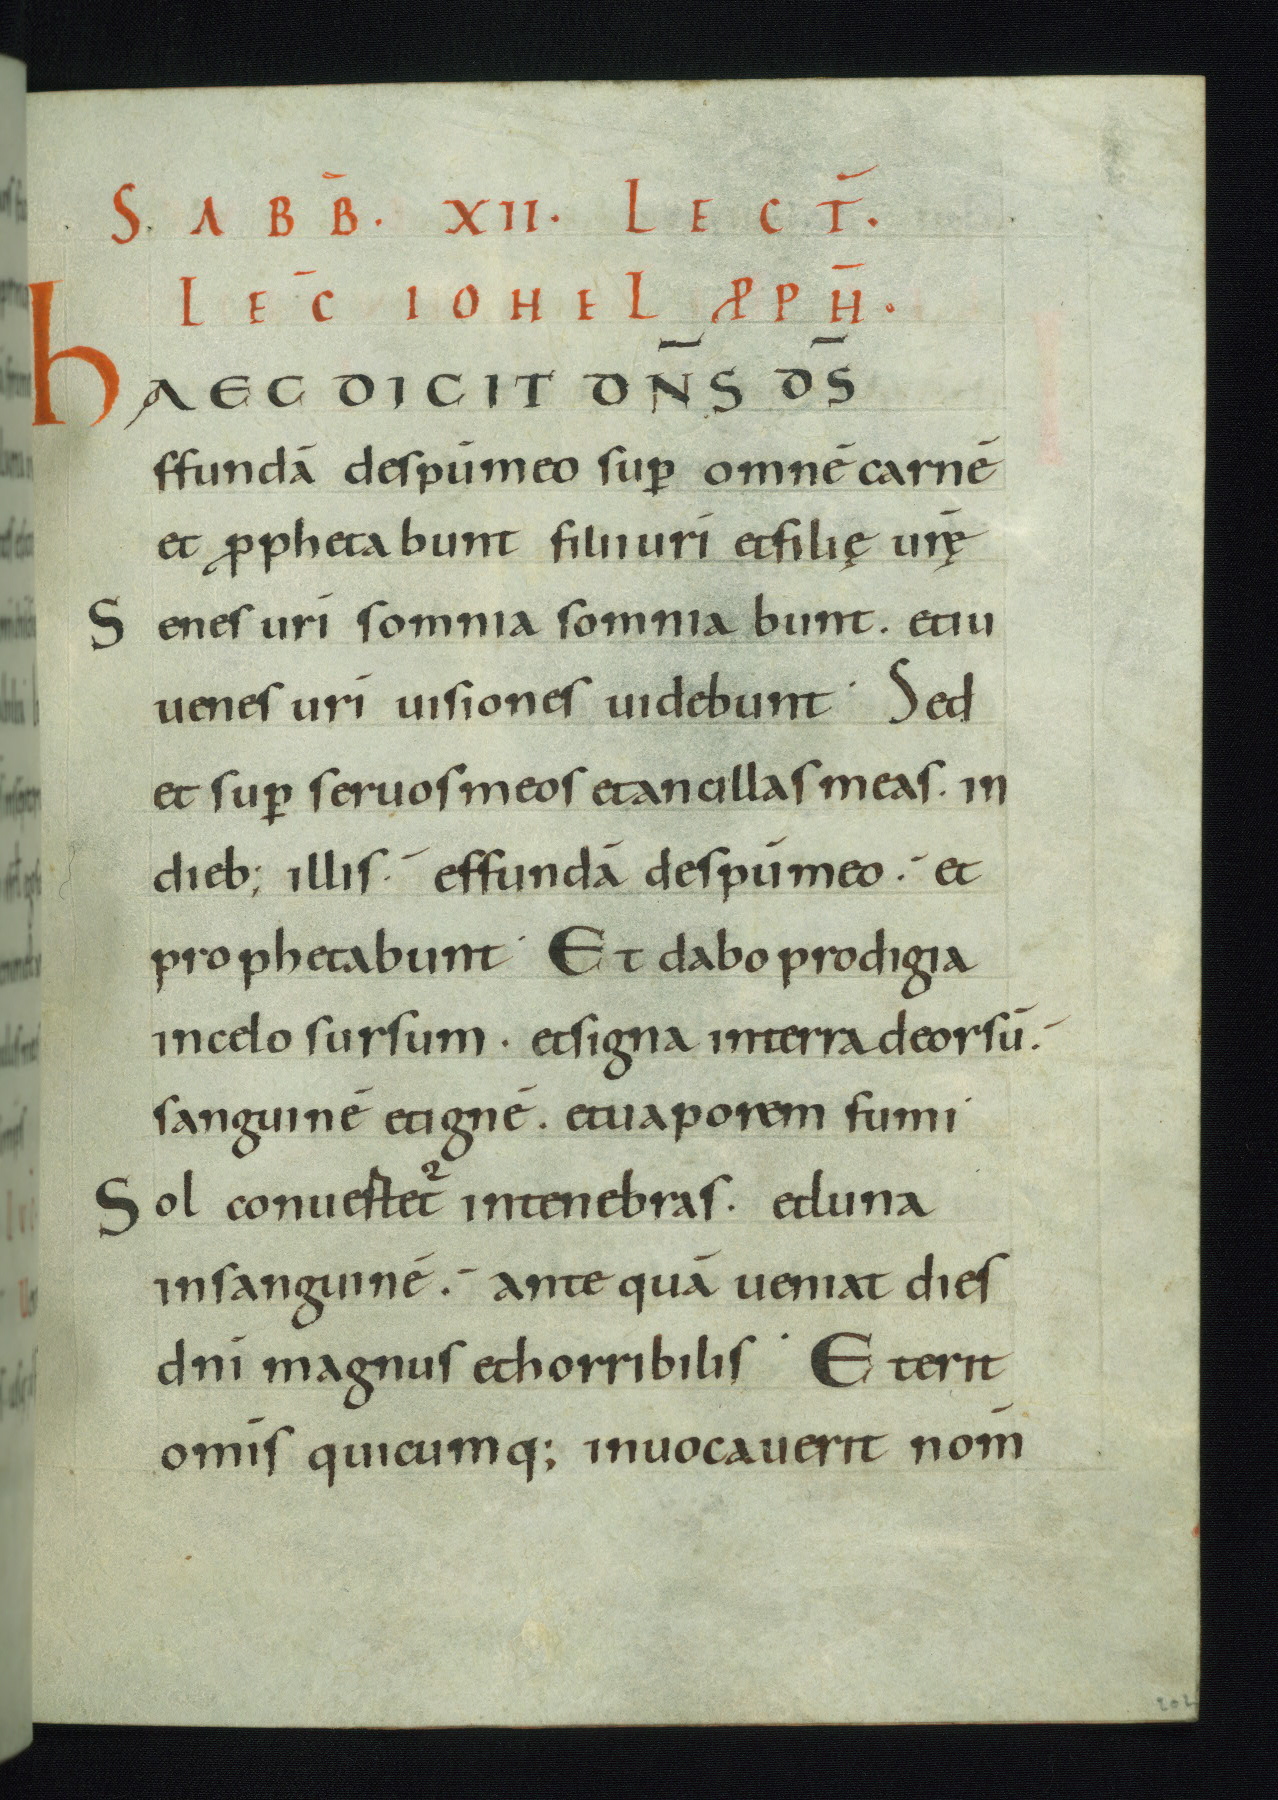 SABB̄. XII. LECT̄.
LEC̄ IOHEL PPH̄.
hAEC DICIT DN̄S DS̄
ffundā despū meo suꝑ omnē carnē
et ꝓphetabunt filii uri̅ et filię urę̅
Senes uri̅ somnia somniabunt. et iu
uenes uri̅ uisiones uidebunt· Sed
et suꝑ seruos meos et ancillas meas. in
dieb; illis· effundā de spū meo· et
prophetabunt· Et dabo prodigia
in celo sursum. et signa in terra deorsū.
sanguinē et ignē. et uaporem fumi·
Sol conuertet᷑ in tenebras. et luna
in sanguinē. ante quā ueniat dies
dni̅ magnus et horribilis· Et erit
omi̅s quicumq; inuocauerit nom̄
204